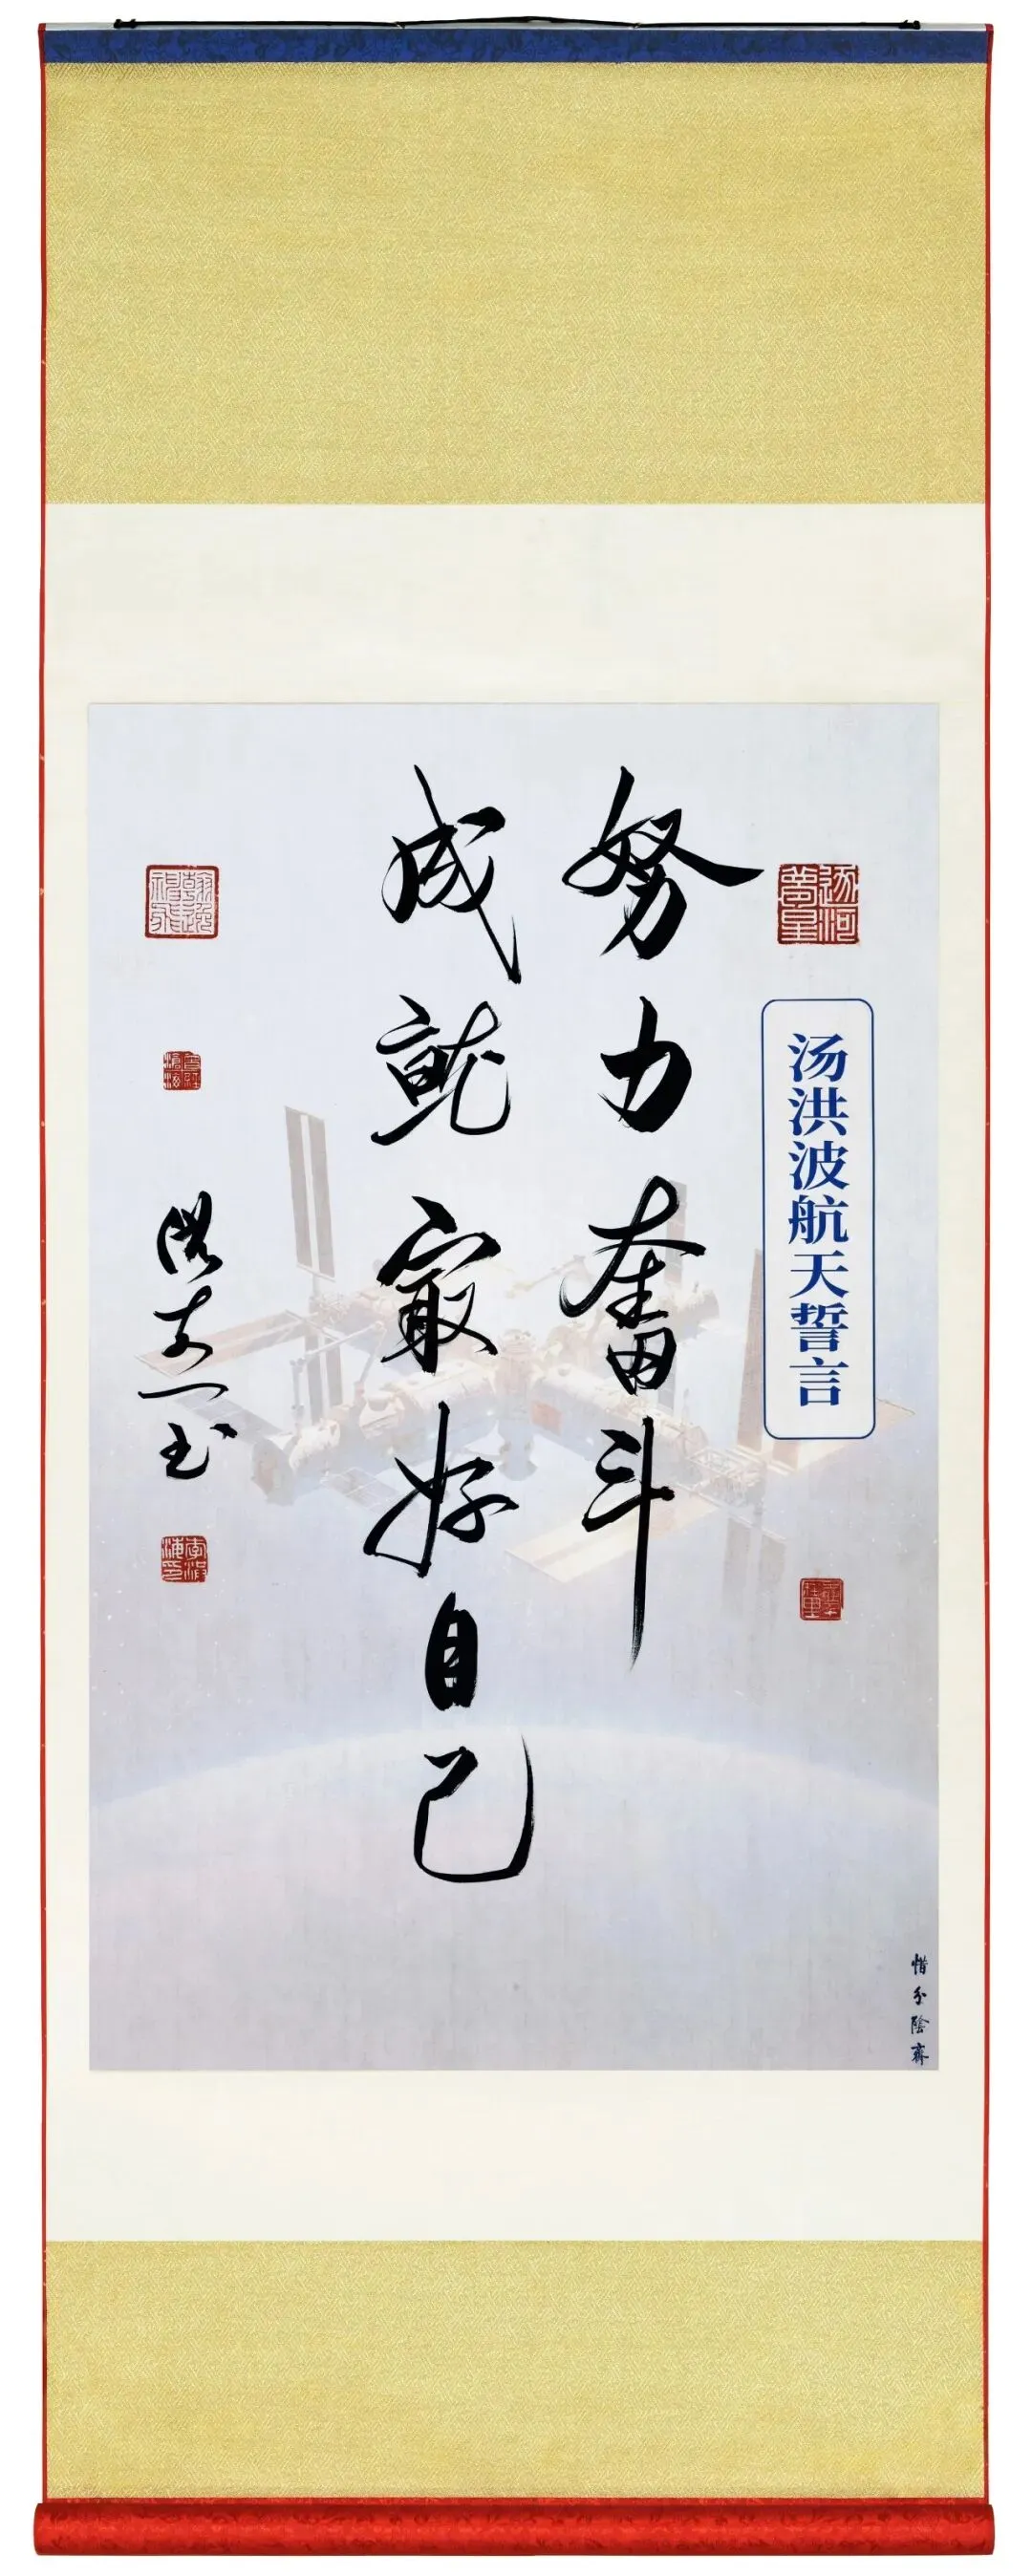 汤洪波航天誓言
努力奋斗
成就最好自己
惜分陰齋